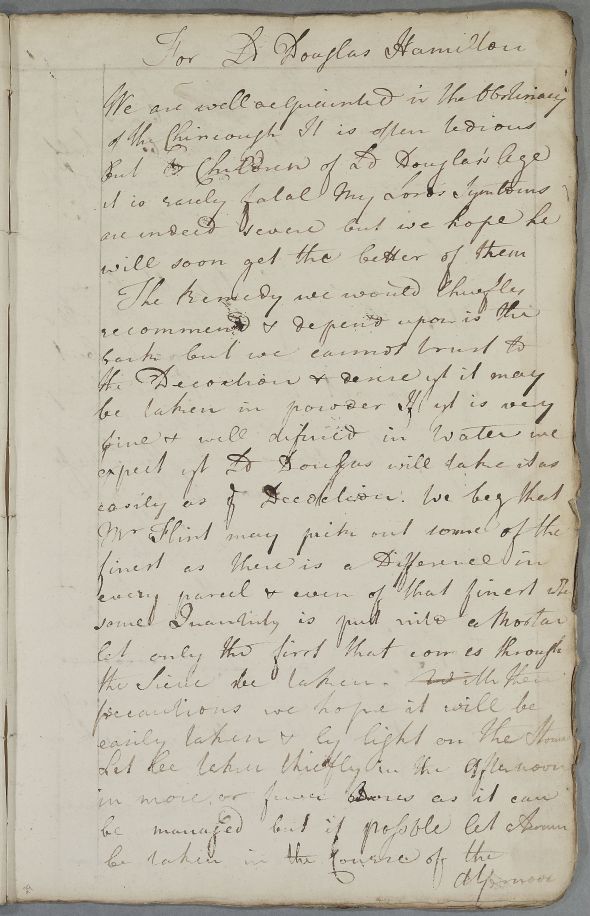 For Ld Douglas Hamilton
We are well acquainted wt the Obstinacy
of the Chincough It is often tedious
but to Children of Ld Douglas's Age
it is rarely fatal My Lords Symtoms
are indeed severe but we hope he
will soon get the better of them
The Remedy we would chiefly
recommend & depend upon is the
bark but we cannot trust to
the Decoction & desire yt it may
be taken in powder If yt is very
fine & will diffused in Water we
expect yt Ld Douglas will take it as
easily as ye Decoction. We beg that
Mr Flint may pick out some of the
finest as there is a Difference in
every parcel & even of that finest
some Quantity is put into a Mortar
let only the first that comes through
the Sieve be taken. With these
precautions we hope it will be
easily taken & ly light on the Stom
Let be taken chiefly in the afternoon
in more or fewer Doses as it can
be managed but if possible let
be taken in the Course of the
afternoon